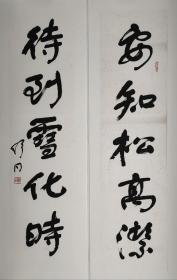 安知松高潔
待到雪化時
舒同